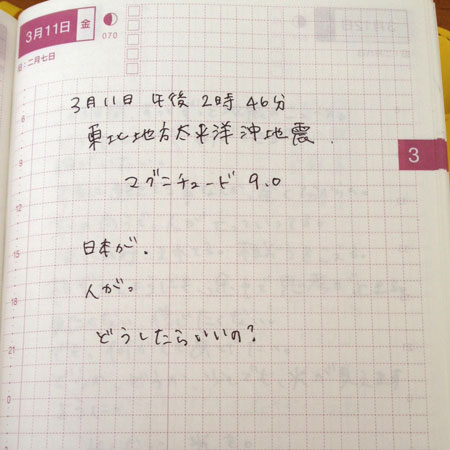 3月11日 金
070
旧:二月七日
3月11日 午後 2時 46分
東北地方太平洋沖地震.
マグニチュード 9.0
日本が.
人が。
どうしたらいいの?
3
6
9
12
15
18
21
0
3